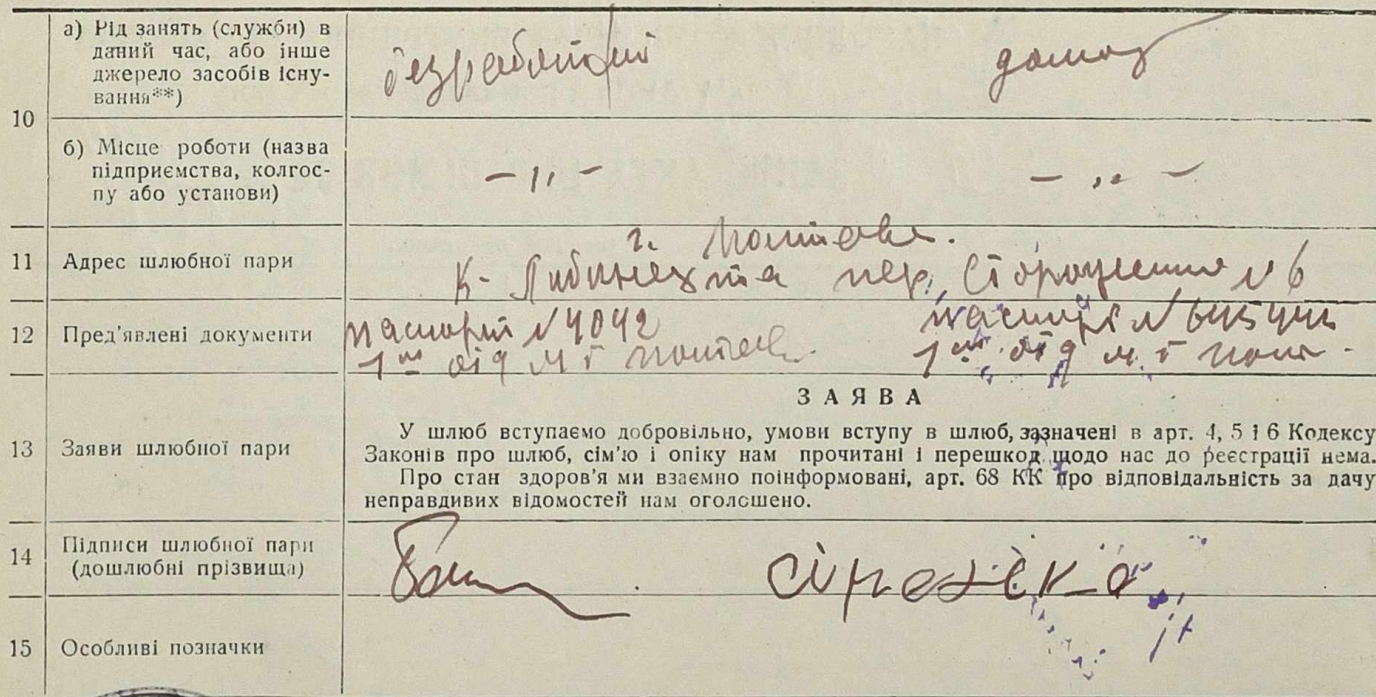 10
а) Рід занять (служби) в
даний час, або інше
джерело засобів існу-
вання**)
безработний
домог
б) Місце роботи (назва
підприємства, колгос-
пу або установи)
- " -
- " -
11
Адрес шлюбної пари
г. Полтава.
пер. Стороженка № 6
12
Пред'явлені документи
паспорт № 4042
1м від м г полтав.
паспорт № 645445
1м від м г полт.
ЗАЯВА
13
Заяви шлюбної пари
У шлюб вступаємо добровільно, умови вступу в шлюб, зазначені в арт. 4, 5 і 6 Кодексу
Законів про шлюб, сім'ю і опіку нам прочитані і перешкод щодо нас до реєстрації нема.
Про стан здоров'я ми взаємно поінформовані, арт. 68 КК про відповідальність за дачу
неправдивих відомостей нам оголошено.
14
Підписи шлюбної пари
(дошлюбні прізвища)
15
Особливі позначки